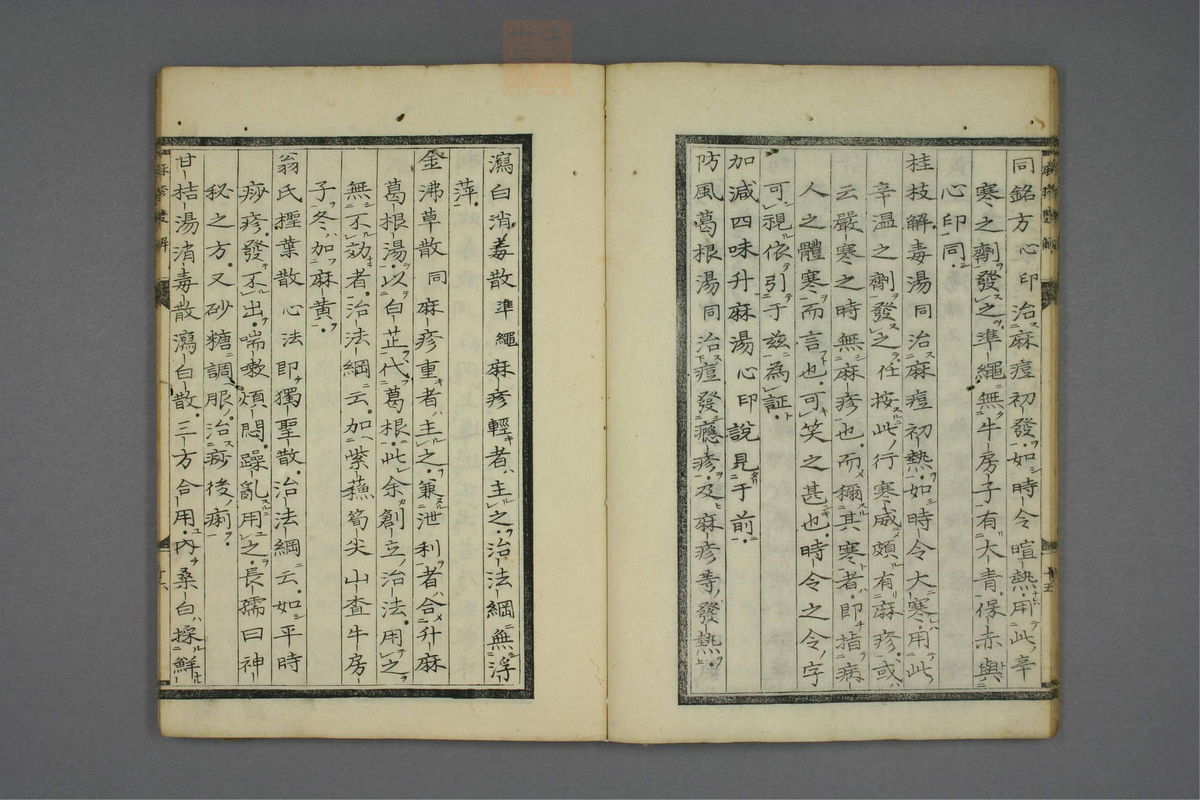 同銘方心印治麻痘初發如時令暄熱用此辛
寒之劑發之準繩無牛房子有大青倮赤與
心印同
桂枝解毒湯同治麻痘初熱如時令大寒用此
辛温之劑發之任按此行寒威頗有麻疹或
云嚴寒之時無麻疹也而稱其寒者即指病
人之體寒而言也可笑之甚也時令之令字
可視依引于茲為証
加減四味升麻湯心印說見于前
防風葛根湯同治痘發癮疹及麻疹等發熱
瀉白消毒散準繩麻疹輕者主之治法綱無浮
萍
金沸草散同麻疹重者主之兼泄利者合升麻
葛根湯以白芷代葛根此余創立治法用之
無不効者治法綱云加紫蘓筍尖山査牛房
子冬加麻黃
翁氏檉葉散心法即獨聖散治法綱云如平時
痧疹發不出喘嗽煩悶躁亂用之長孺曰神
秘之方又砂糖調服治痧後痢
甘桔湯消毒散瀉白散三方合用內桑白採鮮